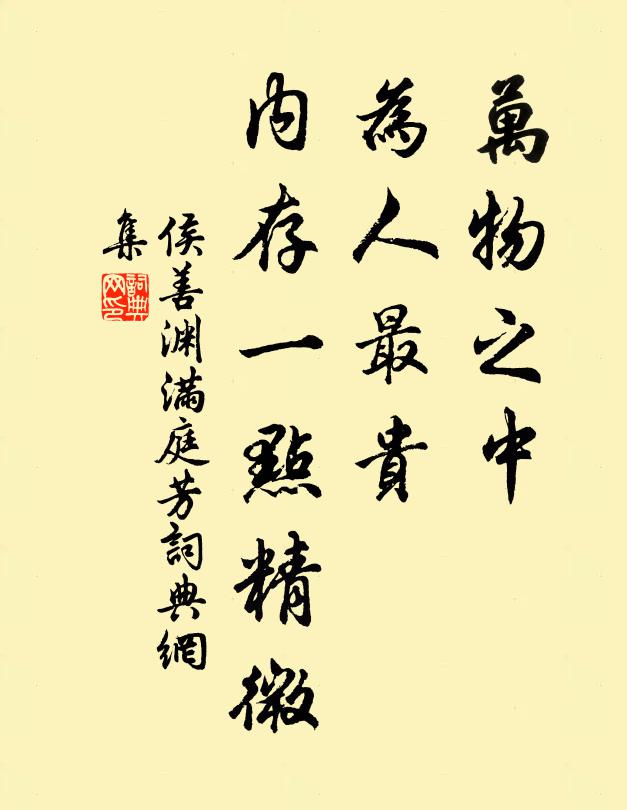 萬物之中
為人最貴
内存一點精微
侯善渊满庭芳詞典網
集
詞典
网印